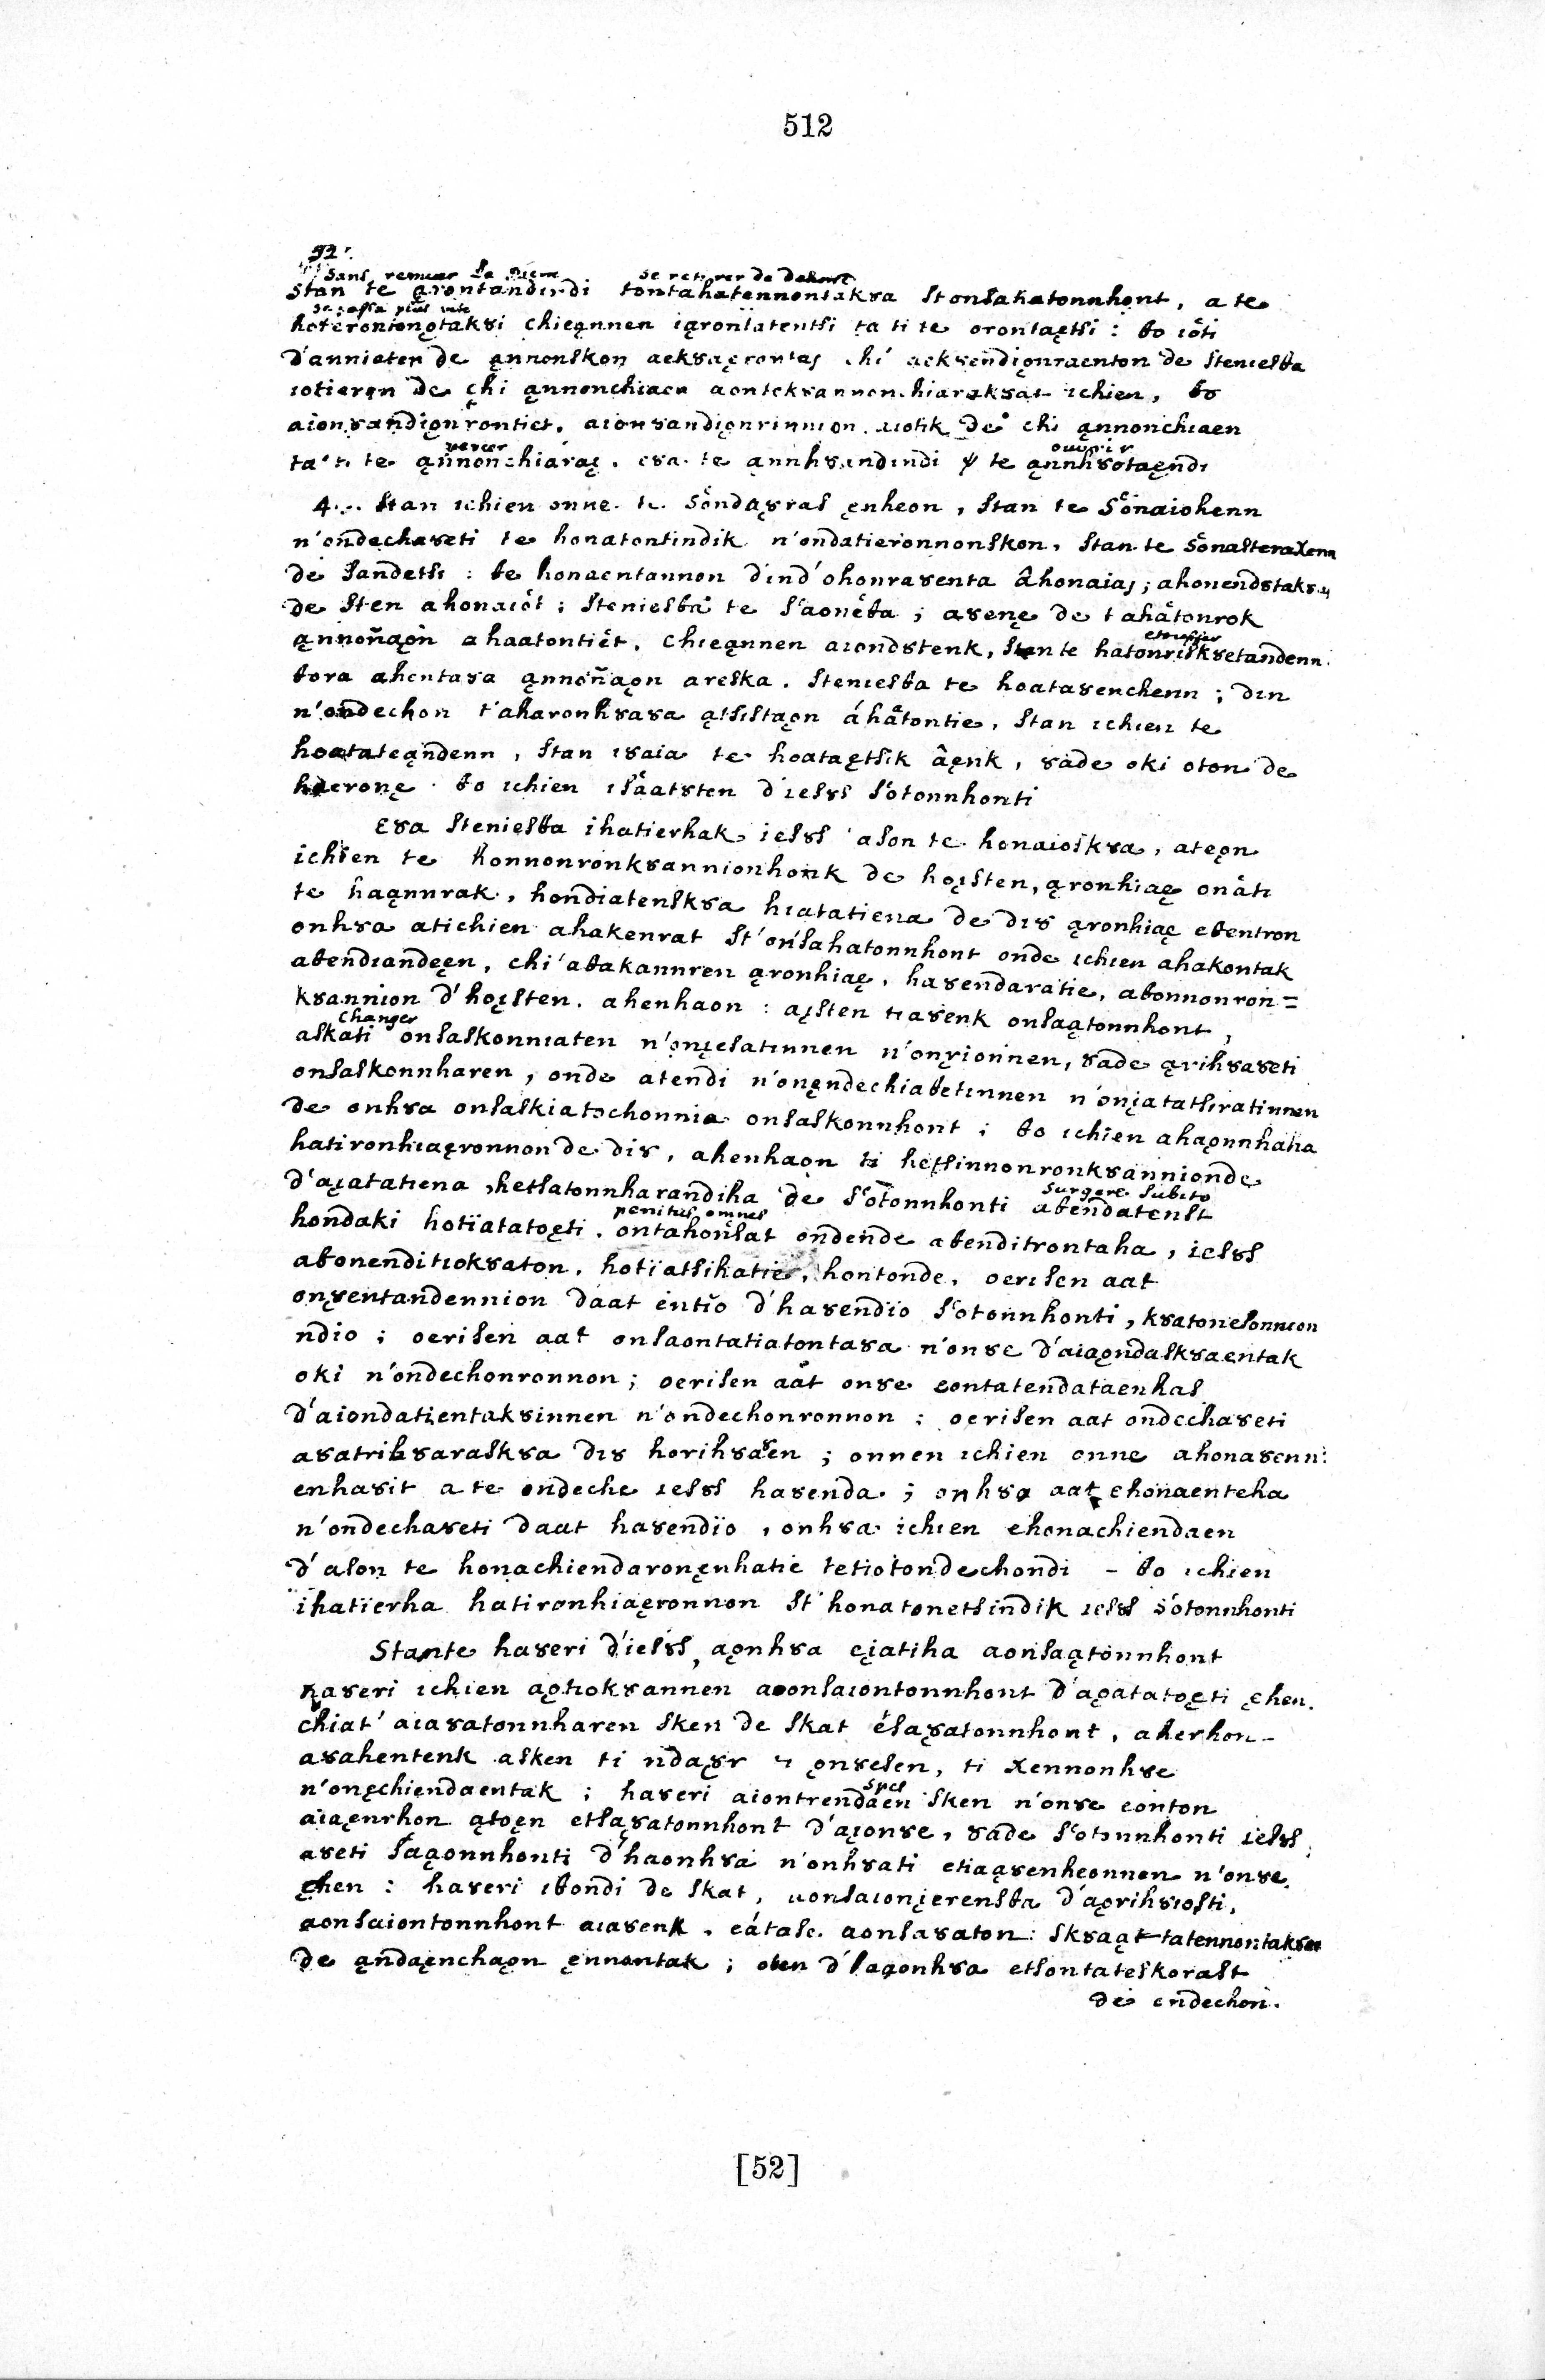 512
92.
Sans remuer la pierre se retirer de dehors
stan te ąrontandirdi tontahatennontakȣa stonsahatonnhont, a te
se passa plus vite
hoteronionǫtakȣi chieąnnen ıąrontatentsi ta ti te orontaętsi : ꝋo ıoti
d'annieten de ąnnonskon aekȣaęrontas chi aekȣendiǫnraenton de stenıesꝋa
ıotieren de chi ąnnonchiaen aontekȣannonchiarakȣat ichien, ꝋo
aionȣandiǫnrontiet. aionȣandiǫnrinnion aiotik de chi ąnnonchiaen
percer ouvrir
ta ti te ąnnonchiaraę. eȣa te annhȣandındi te ąnnhȣotaęndı
4... Stan ichien onne te sondaȣras ęnheon, stan te sonaiohenn
n'ondechaȣeti te honatontindik n'ondatieronnonskon, stan te sonastenaxenn
de sandetsi : te honaentannon dind'ohonraȣenta âhonaias; ahonendȣtakȣ
de sten ahonaıot; stenıesꝋa te s'aoneꝋa; aȣenę de tahatonrok
etouffer
ąnnoñaǫn ahaatontiet. chieąnnen aıondȣtenk, stan te hatonriskȣetandenn
ꝋora ahentaȣa ąnnoñaǫn areska. stenıesꝋa te hoataȣenchenn; dın
n'ondechon t'aharonhȣaȣa ątsistaǫn áhatontie, stan ichien te
hoatateandenn, stan ıȣaia te hoataętsik âęnk, ȣade oki oton de
haeronę. ꝋo ichien ısaatȣten d'iesȣs s'otonnhonti
Eȣa stenıesꝋa ihatierhak iesȣs ason te honaioskȣa, ateǫn
ichien te honnonronkȣannionhonk de hoįsten, ąronhiaę onâti
te haąnnrak. hondiatenskȣa hıatatiena de diȣ ąronhiaę eꝋentron
onhȣa atichien ahakenrat st'onsahatonnhont onde ichien ahakontak
aꝋendıandęen, chi'aꝋakannren ąronhiaę, haȣendaratie, aꝋonnonron=
kȣannion d'hoįsten. ahenhaon : aįsten tıaȣenk onsaątonnhont,
Changer
askati onsaskonnıaten n'onįesatınnen n'onȣionnen, ȣade ąrihȣaȣeti
onsaskonnharen, onde atendi n'onęndechiaꝋetınnen n'onįatatsıratinnen
de onhȣa onsaskiatochonnia onsaskonnhont; ꝋo ichien ahaǫnnhaha
hatironhıaęronnon de diȣ, ahenhaon ti hetsinnonronkȣannionde
Surgere subito
d'aįatatiena, hetsatonnharandiha de s'otonnhonti aꝋendatenst
penitus omnes
hondaki hotïatatoęti. ontahonsat ondende aꝋenditrontaha, iesȣs
aꝋonenditıokȣaton. hotïatsihatie, hontonde, oerısen aat
onȣentandennion daat entïo d'haȣendïo s'otonnhonti, kȣatonesonnıon
ndio; oerisen aat onsaontatiatontaȣa n'onȣe d'aiaondaskȣaentak
oki n'ondechonronnon; oerisen aat onȣe eontatendataenhas
d'aiondatientakȣinnen n'ondechonronnon : oerisen aat ondechaȣeti
aȣatrihȣaraskȣa diȣ horihȣaȣen; onnen ichien onne ahonaȣenn:
enhaȣit a te ondeche iesȣs haȣenda; onhȣa aat ehonaenteha
n'ondechaȣeti daat haȣendïo, onhȣa ichien ehonachiendaen
d'ason te honachiendaronęnhatie tetiotondechondi - ꝋo ichien
ihatïerha hatironhiaęronnon st'honatonetsindik iesȣs s'otonnhonti
Stante haȣeri d'iesȣs, aǫnhȣa eįatiha aonsaątonnhont
haȣeri ichien aǫtiokȣannen aonsaıontonnhont d'aǫatatoęti ęhen.
chiat' aıaȣatonnharen sken de skat ésaȣatonnhont, aherhon-
aȣahentenk asken ti ndaȣr ti ǫnȣesen, ti xennonhȣe
spes
n'onęchiendaentak; haȣeri aiontrendaen sken n'onȣe eonton
aiaęnrhon ątoęn etsąȣatonnhont d'aįonȣe, ȣade s'otonnhonti iesȣs;
aȣeti saǫonnhonti d'haonhȣa n'onhȣati etiaąȣenheonnen n'onȣe.
ęhen : haȣeri iꝋondi de skat, aonsaıonįerensꝋa d'aǫrihȣiosti,
aonsaiontonnhont aıaȣenk. eátase. aonsaȣaton : skȣaąt tatennontakȣa
de ąndaęnchaǫn ęnnontak; oten d'saǫonhȣa etsontateskorast
de ondechon.
[52]